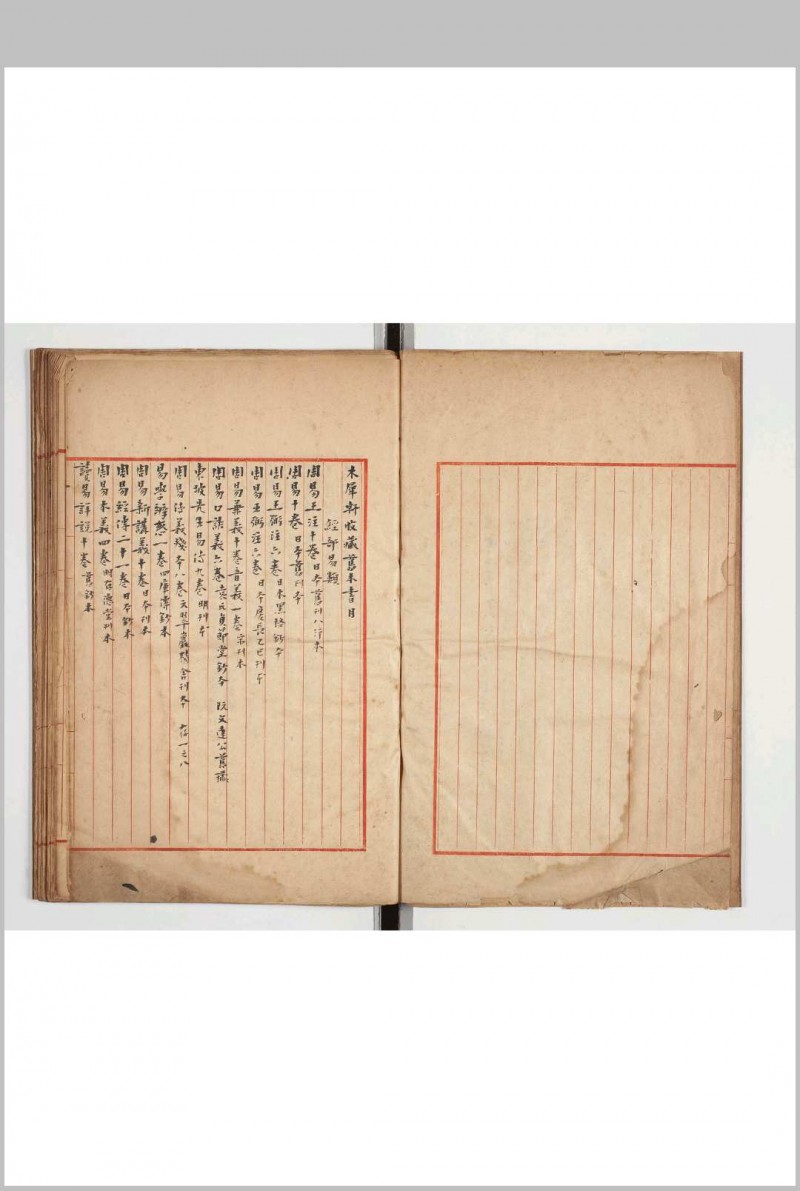 木犀軒收藏舊本書目
經部易類
周易王注十卷 日本舊刊八行本
周易十卷 日本舊刊本
周易王弼注六卷 日本黑格鈔本
周易王弼注六卷 日本慶長乙巳刊本
周易兼義十卷音義一卷 宋刊本
周易口訣義六卷 貞節堂鈔本 阮文達公舊藏
東坡先生易傳九卷 明刊本
周易傳義 本八卷 刊本 存一之八
易學辨惑一卷 四庫鈔本
周易新講義十卷 日本刊本
周易經傳二十一卷 日本鈔本
周易本義四卷 明存德堂刊本
讀易詳說十卷 舊鈔本